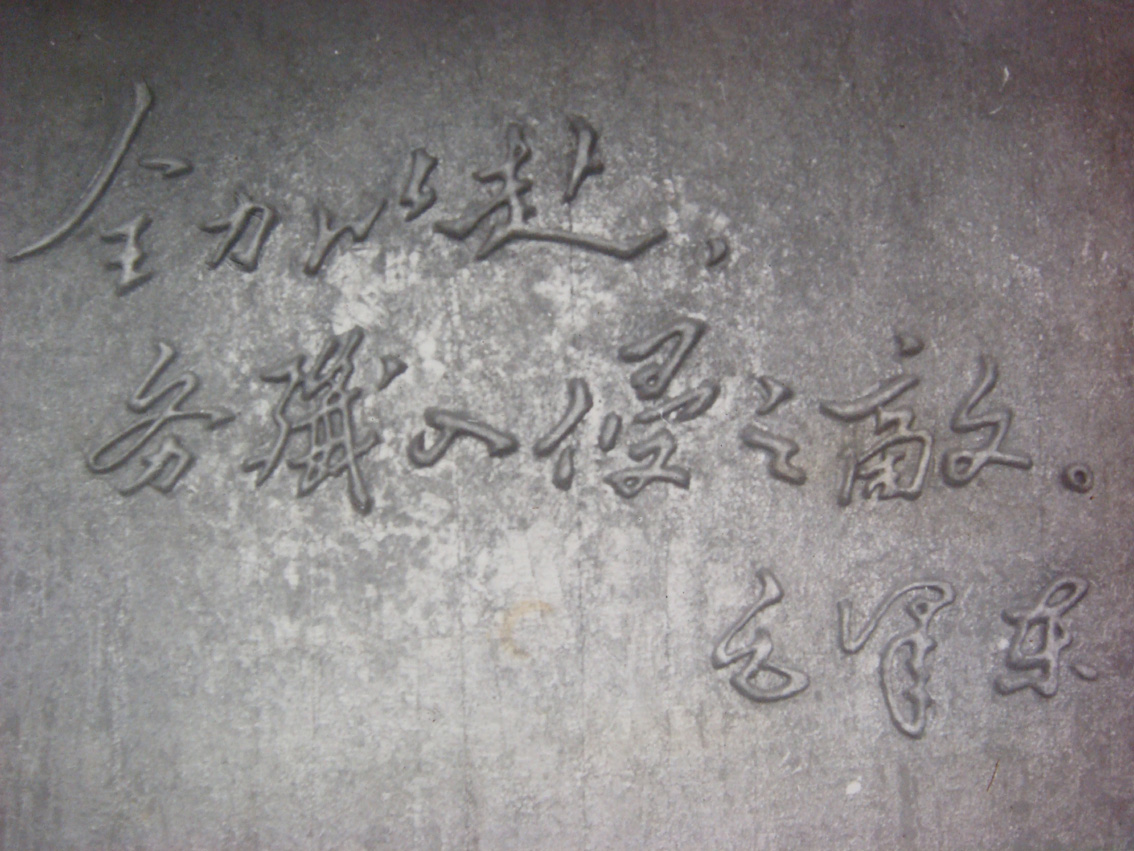 全力以赴、
务殱入侵之敵。
毛泽东